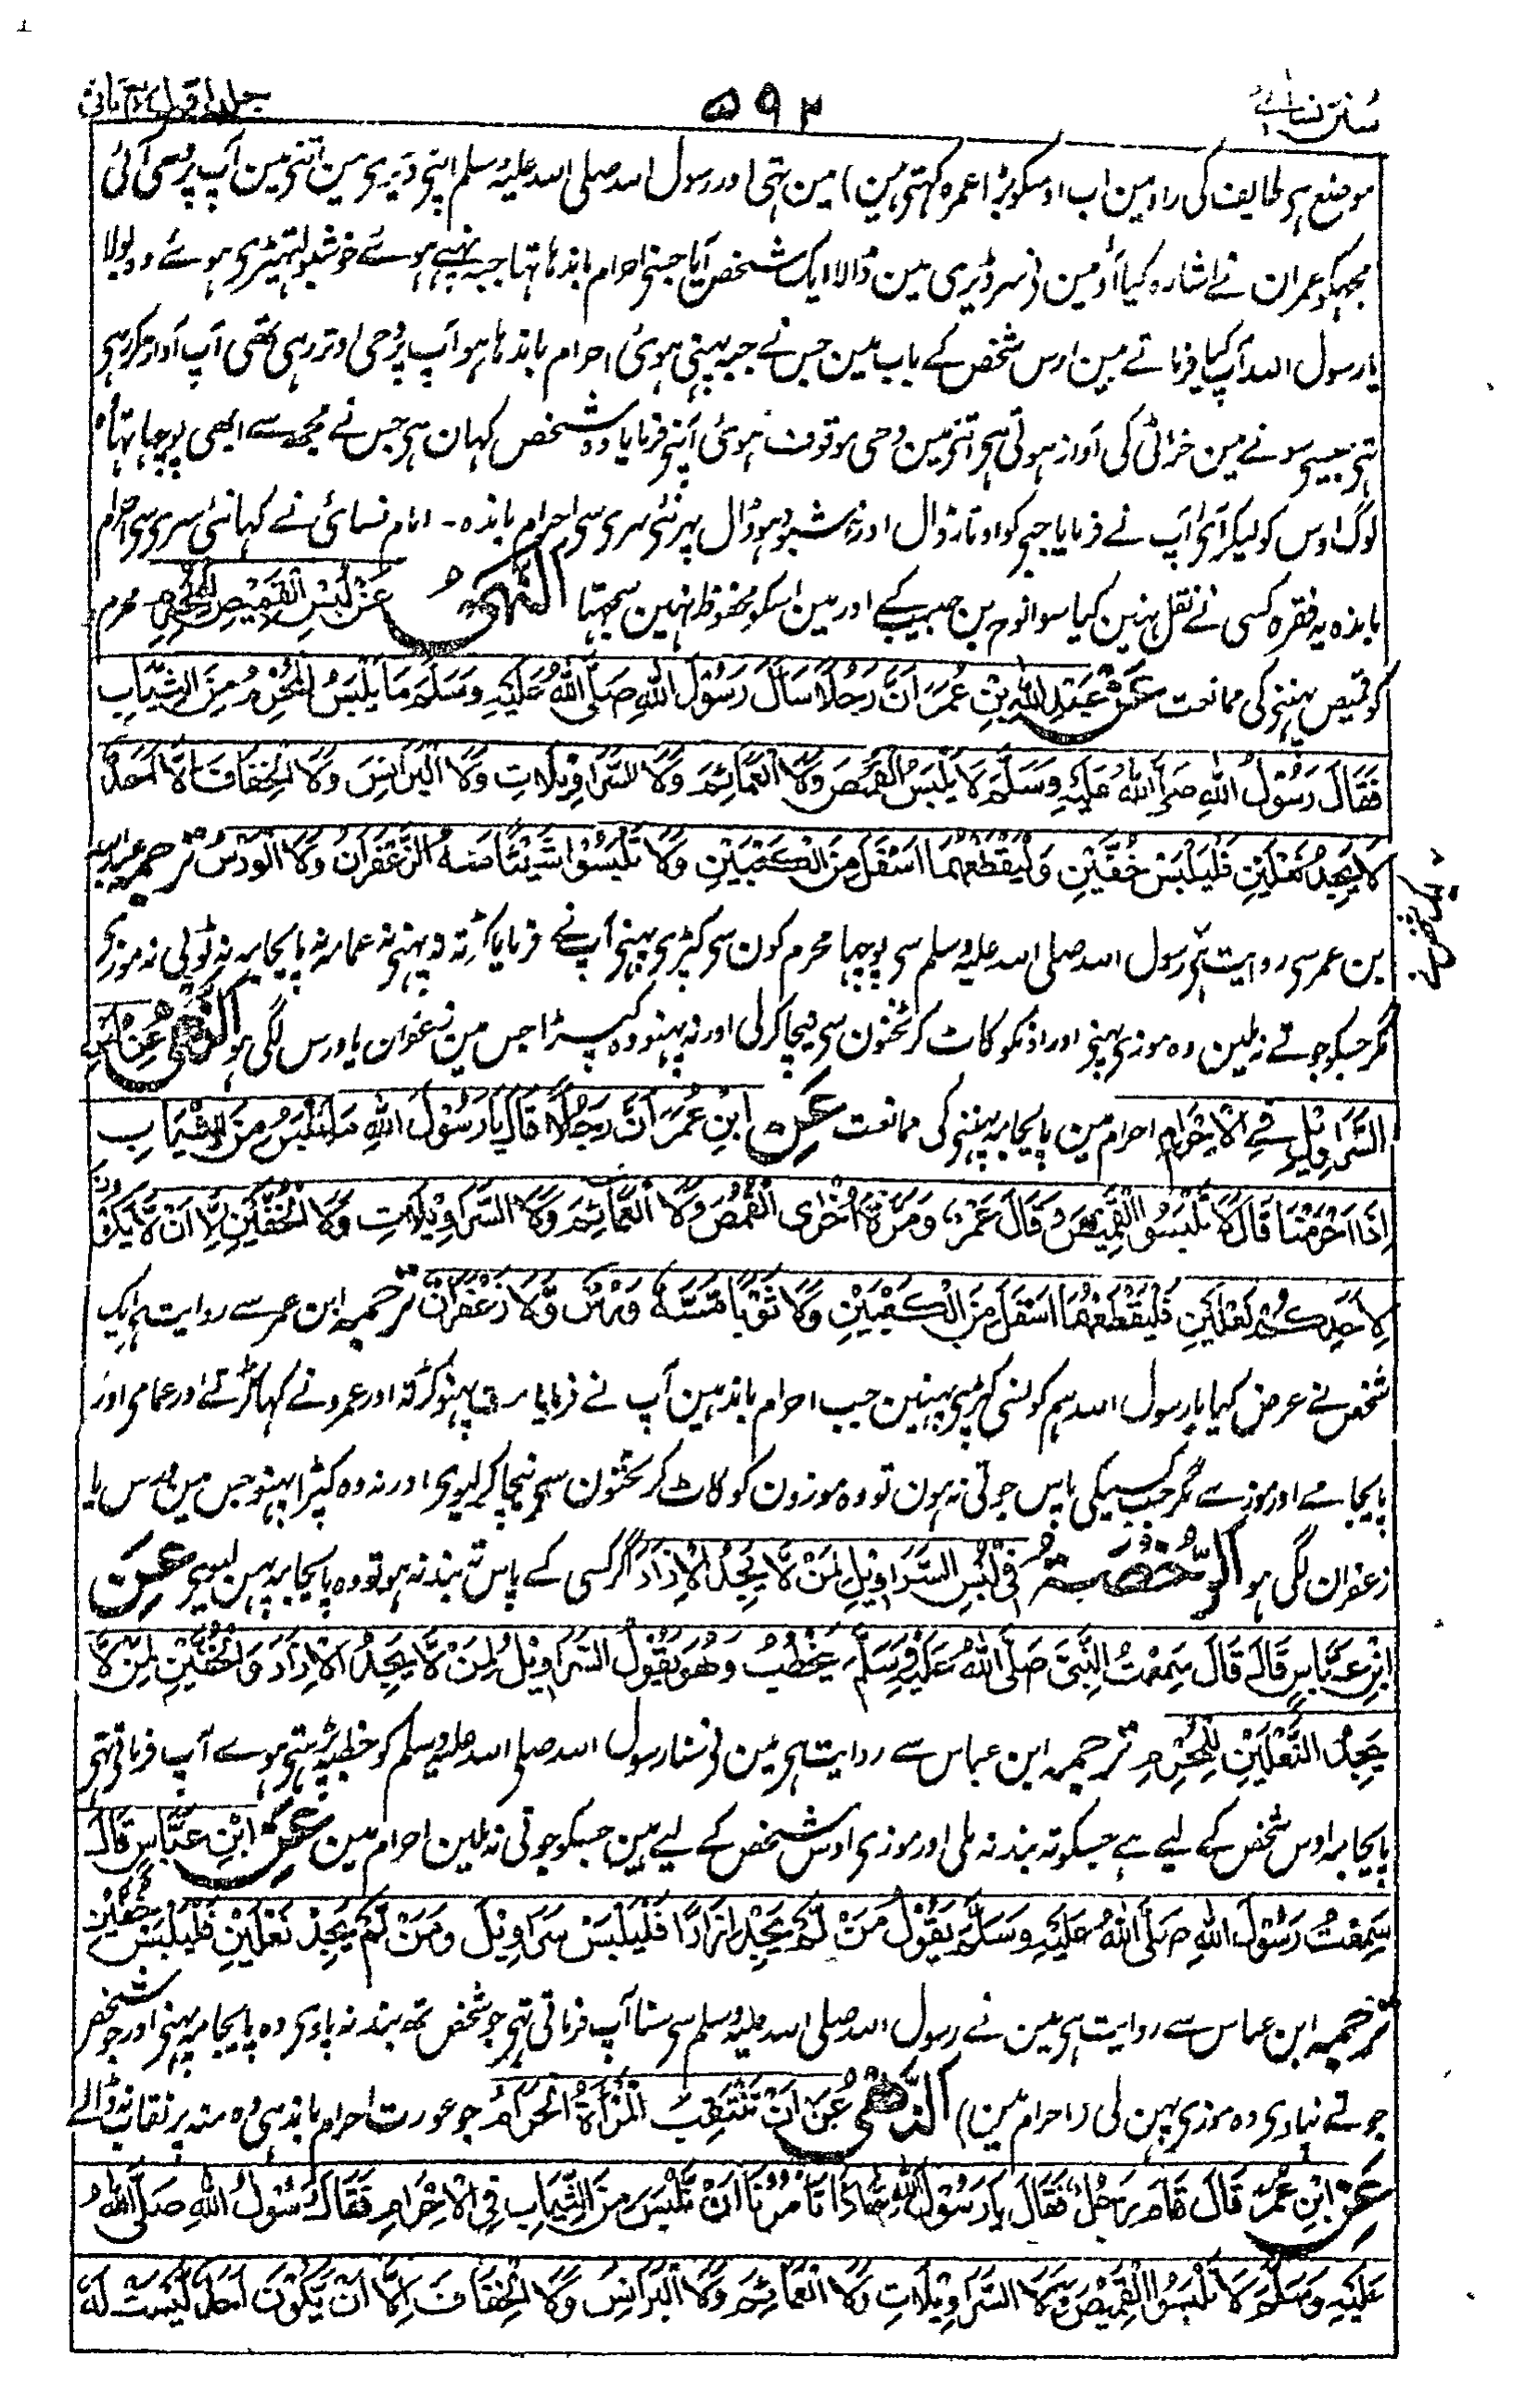 سنن نسائی
۵۹۲
جلد اول
موضع ہی طایف کی راہ مین اب اوسکو بڑا عمرہ کہتی ہین) مین تہی اور رسول اللہ صلی اللہ علیہ وسلم اپنی ڈیری مین اتنی مین آپ پر وحی آئی
مجہکو عمران نے اشارہ کیا آؤ مین نی سر ڈیری مین ڈالا ایک شخص آیا جسنی احرام باندہا تہا جبہ پہنے ہوئے خوشبو لتہیڑی ہوئے وہ بولا
یا رسول اللہ آپ کیا فرماتے ہین اوس شخص کے باب مین جس نے جبہ پہنی ہوئی احرام باندہا ہو آپ پر وحی اوتر رہی تھی آپ آواز کر رہی
تہی جیسی سونے مین خراٹی کی آواز ہوتی ہی اتنی مین وحی موقوف ہوئی آپنی فرمایا وہ شخص کہان ہی جس نے مجھ سے ابھی پوچہا تہا
لوگ اوس کو لیکر آئی آپ نے فرمایا جبہ کو اوتار ڈال اور خوشبو دہو ڈال پہر نئی سری سی احرام باندہ - امام نسائی نے کہا نئی سری سی احرام
باندہ یہ فقرہ کسی نے نقل نہین کیا سوا نوح بن حبیب کے اور مین اسکو محفوظ نہین سمجہتا النَّہْیُ عَنْ لُبْسِ الْقَمِیْصِ لِلْمُحْرِمِ محرم
کو قمیص پہننی کی ممانعت عَنْ عَبْدِ اللّٰہِ بْنِ عُمَرَ اَنَّ رَجُلًا سَاَلَ رَسُوْلَ اللّٰہِ صَلَّی اللّٰہُ عَلَیْہِ وَسَلَّمَ مَا یَلْبَسُ الْمُحْرِمُ مِنَ الثِّیَابِ
فَقَالَ رَسُوْلُ اللّٰہِ صَلَّی اللّٰہُ عَلَیْہِ وَسَلَّمَ لَا یَلْبَسُ الْقَمِیْصَ وَلَا الْعَمَائِمَ وَلَا السَّرَاوِیْلَاتِ وَلَا الْبَرَانِسَ وَلَا الْخِفَافَ اِلَّا اَحَدٌ
لَا یَجِدُ نَعْلَیْنِ فَلْیَلْبَسْ خُفَّیْنِ وَلْیَقْطَعْہُمَا اَسْفَلَ مِنَ الْکَعْبَیْنِ وَلَا تَلْبَسُوْا شَیْئًا مَسَّہُ الزَّعْفَرَانُ وَلَا الْوَرْسُ ترجمہ عبداللہ
بن عمر سی روایت ہی رسول اللہ صلی اللہ علیہ وسلم سی پوچہا محرم کون سی کپڑی پہنی آپ نے فرمایا کرتہ نہ پہنی نہ عمامہ نہ پایجامہ نہ ٹوپی نہ موزی
مگر جسکو جوتے نہ ملین وہ موزی پہنی اور اونکو کاٹ کر ٹخنون سی نیچا کرلی اور نہ پہنو وہ کپڑا جس مین زعفران یا ورس لگی ہو النَّہْیُ عَنْ لُبْسِ
السَّرَاوِیْلِ فِی الْاِحْرَامِ احرام مین پایجامہ پہننی کی ممانعت عَنِ ابْنِ عُمَرَ اَنَّ رَجُلًا قَالَ یَا رَسُوْلَ اللّٰہِ مَا نَلْبَسُ مِنَ الثِّیَابِ
اِذَا اَحْرَمْنَا قَالَ لَا تَلْبَسُوا الْقَمِیْصَ وَقَالَ عَمْرٌو مَرَّۃً اُخْرٰی الْقُمُصَ وَلَا الْعَمَائِمَ وَلَا السَّرَاوِیْلَاتِ وَلَا الْخُفَّیْنِ اِلَّا اَنْ لَّا یَکُوْنَ
لِاَحَدِکُمْ نَعْلَیْنِ فَلْیَقْطَعْہُمَا اَسْفَلَ مِنَ الْکَعْبَیْنِ وَلَا ثَوْبًا مَسَّہٗ وَرْسٌ وَّلَا زَعْفَرَانٌ ترجمہ ابن عمر سے روایت ہی ایک
شخص نے عرض کیا یا رسول اللہ ہم کونسی کپڑی پہنین جب احرام باندہین آپ نے فرمایا مت پہنو کرتہ اور عمرو نے کہا کرتے اور عمامی اور
پایجامے اور موزے مگر جب کسیکی پاس جوتی نہ ہون تو وہ موزون کو کاٹ کر ٹخنون سی نیچا کر لیوی اور نہ وہ کپڑا پہنو جس مین ورس یا
زعفران لگی ہو الرُّخْصَۃُ فِی لُبْسِ السَّرَاوِیْلِ لِمَنْ لَّا یَجِدُ الْاِزَارَ اگر کسی کے پاس تہ بند نہ ہو تو وہ پایجامہ پہن لیوی عَنِ
ابْنِ عَبَّاسٍ قَالَ قَالَ سَمِعْتُ النَّبِیَّ صَلَّی اللّٰہُ عَلَیْہِ وَسَلَّمَ یَخْطُبُ وَہُوَ یَقُوْلُ السَّرَاوِیْلُ لِمَنْ لَّا یَجِدُ الْاِزَارَ وَالْخُفَّیْنِ لِمَنْ لَّا
یَجِدُ النَّعْلَیْنِ لِلْمُحْرِمِ ترجمہ ابن عباس سے روایت ہی مین نی سنا رسول اللہ صلی اللہ علیہ وسلم کو خطبہ پڑہتی ہوے آپ فرماتی تہی
پایجامہ اوس شخص کے لیے ہے جسکو تہ بند نہ ملی اور موزی اوس شخص کے لیے ہین جسکو جوتی نہ ملین احرام مین عَنِ ابْنِ عَبَّاسٍ قَالَ
سَمِعْتُ رَسُوْلَ اللّٰہِ صَلَّی اللّٰہُ عَلَیْہِ وَسَلَّمَ یَقُوْلُ مَنْ لَّمْ یَجِدْ اِزَارًا فَلْیَلْبَسْ سَرَاوِیْلَ وَمَنْ لَّمْ یَجِدْ نَعْلَیْنِ فَلْیَلْبَسْ خُفَّیْنِ
ترجمہ ابن عباس سے روایت ہی مین نے رسول اللہ صلی اللہ علیہ وسلم سی سنا آپ فرماتی تہی جو شخص تہ بند نہ پاوی وہ پایجامہ پہنی اور جو شخص
جوتے نپاوی وہ موزی پہن لی (احرام مین) النَّہْیُ عَنْ اَنْ تَنْتَقِبَ الْمَرْاَۃُ الْحَرَامُ جو عورت احرام باندہی وہ منہ پر نقاب نہ ڈالے
عَنِ ابْنِ عُمَرَ قَالَ قَامَ رَجُلٌ فَقَالَ یَا رَسُوْلَ اللّٰہِ مَاذَا تَاْمُرُنَا اَنْ نَلْبَسَ مِنَ الثِّیَابِ فِی الْاِحْرَامِ فَقَالَ رَسُوْلُ اللّٰہِ صَلَّی اللّٰہُ
عَلَیْہِ وَسَلَّمَ لَا تَلْبَسُوا الْقَمِیْصَ وَلَا السَّرَاوِیْلَاتِ وَلَا الْعَمَائِمَ وَلَا الْبَرَانِسَ وَلَا الْخِفَافَ اِلَّا اَنْ یَّکُوْنَ اَحَدٌ لَیْسَتْ لَہٗ